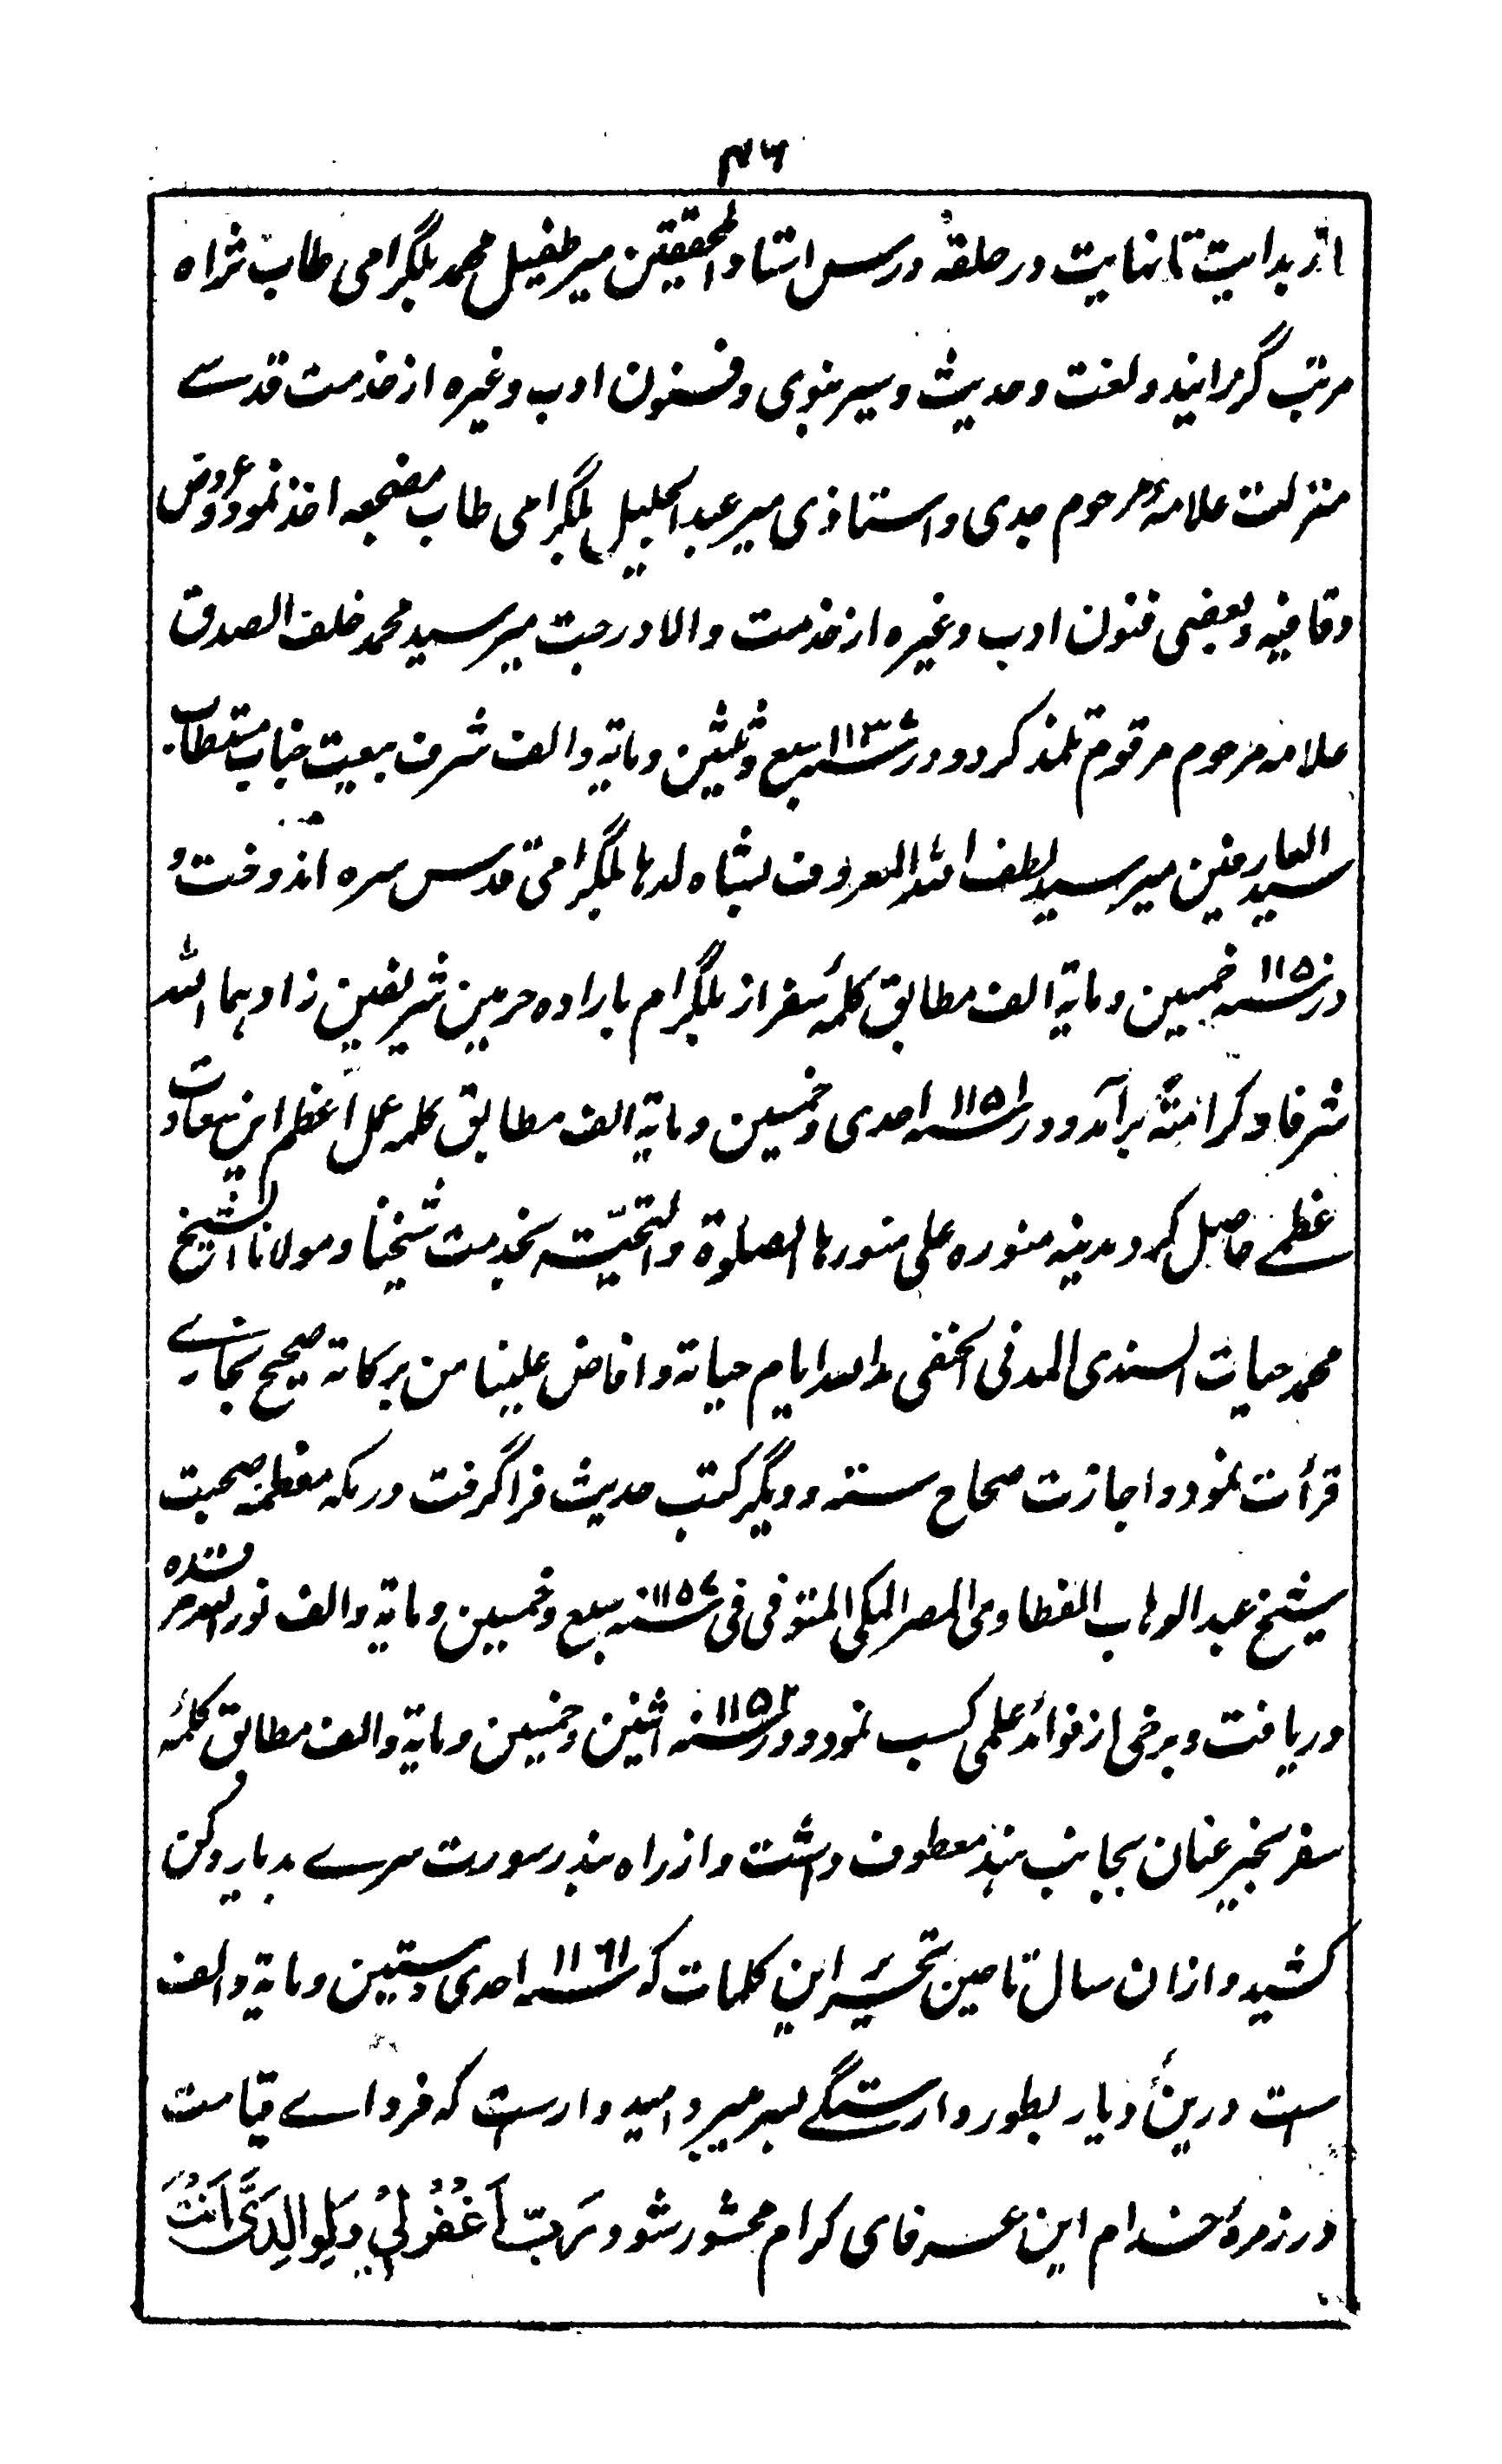 ۴۶
از بدایت تا نهایت در حلقهٔ درس استاد المحققین میر طفیل محمد بلگرامی طاب ثراه
مرتب گزرانید و لغت و حدیث و سیر نبوی و فنون ادب و غیره از خدمت قدسے
منزلت علامهٔ مرحوم جدی و استاذی میر عبد الجلیل بلگرامی طاب مضجعه اخذ نمود و عروض
و قافیه و بعضی فنون ادب و غیره از خدمت والا درجت میر سید محمد خلف الصدق
علامه مرحوم مرقوم تلمذ کرد و در سنه ۱۱۳۷ سبع و ثلثین و مایة و الف شرف بیعت جناب مستطاب
سید العارفین میر سید لطف الله المعروف بشاه لدها بلگرامی قدس سره اندوخت و
در سنه ۱۱۵۰ خمسین و مایة الف مطابق کلمهٔ سفر از بلگرام باراده حرمین شریفین زادهما الله
شرفا و کرامةً برآمد و در سنه ۱۱۵۱ احدی و خمسین و مایة الف مطابق کلمه عمل اعظم این سعادت
عظمے حاصل کرد و مدینه منوره علی منورها الصلوة و التحیّته بخدمت شیخنا و مولانا الشیخ
محمد حیات السندی المدنی الحنفی مد الله ایام حیاته و افاض علینا من برکاته صحیح بخارے
قرأت نمود و اجازت صحاح سته و دیگر کتب حدیث فرا گرفت در مکه معظمه صحبت
شیخ عبد الوهاب الطنطاوی المصر المکی المتوفی فی سنه ۱۱۵۷ سبع و خمسین و مایة و الف نور الله مرقده
دریافت و برخی از فوائد علمی کسب نمود و در سنه ۱۱۵۲ اثنین و خمسین و مایة و الف مطابق کلمهٔ
سفر بخیر عنان بجانب هند معطوف داشت و از راه بندر سورت سرے بدیار دکن
کشید و ازان سال تا حین تحریر این کلمات که سنه ۱۱۶۱ احدی و ستین و مایة و الف
ست درین دیار بطور وارستگے بسر میبرد امیدوارست که فرداے قیامت
در زمرهٔ خدام این عرفای کرام محشور شود رَبِّ اَغْفُرْلِیْ وَلِوالِدَیَّ اَنْتَ